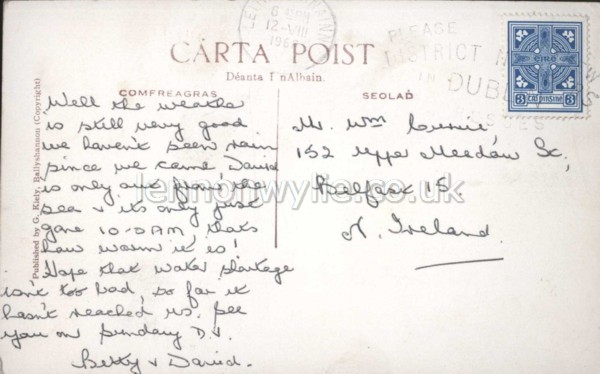 6 PM
12-VIII
PLEASE
DISTRICT N
IN DUBL
ÉIRE
3 TRÍ PINGINE 3
CÁRTA POIST
Déanta I nAlbain.
COMFREAGRAS
SEOLAḊ
Published by G. Kiely, Ballyshannon (Copyright)
Well the weather
is still very good
we haven't seen rain
since we came David
is only out from the
sea & its only just
gone 10-0 AM, thats
how warm it is!
Hope that water shortage
isn't too bad, so far it
hasn't reached us. See
you on Sunday D.V.
Betty & David.
Mr. Wm Currie,
152 Upper Meadow St,
Belfast 15
N. Ireland.
lennonwylie.co.uk